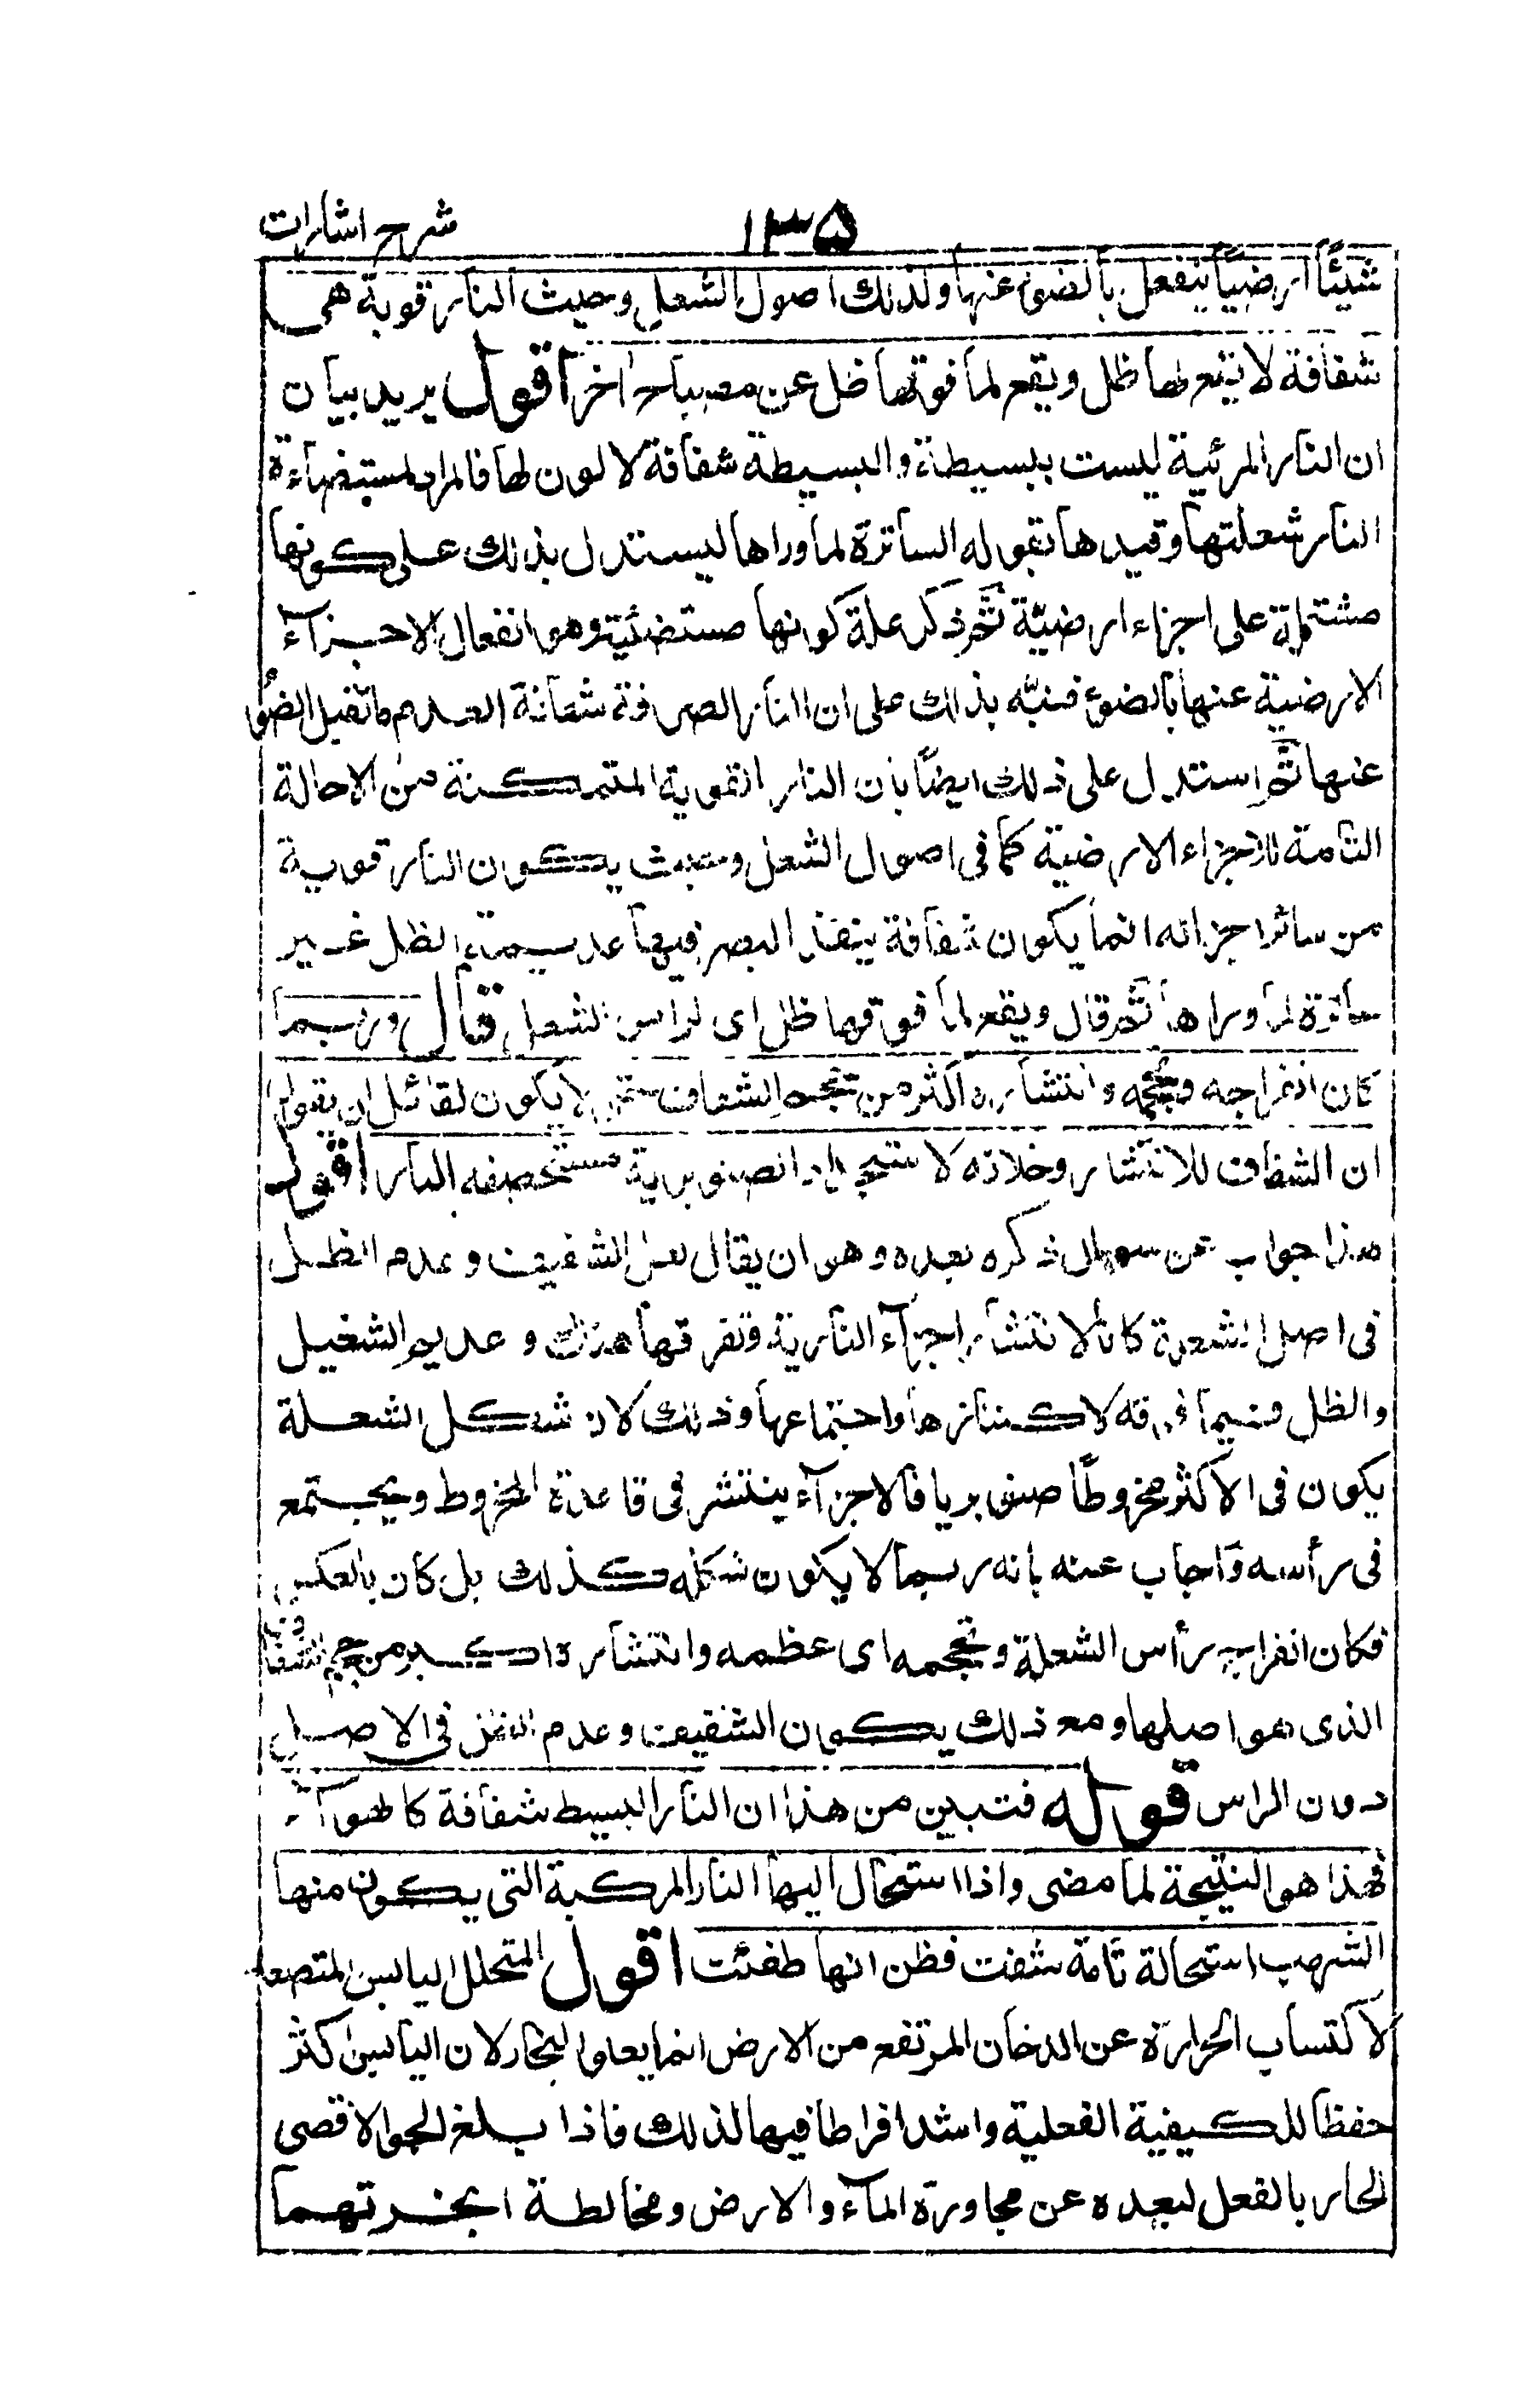 شرح اشارات
۱۳۵
شيئًا ارضيًا ينفعل بالضوء عنها ولذلك اصول الشعل وحيث النار قوية هى
شفافة لا يقع لها ظل ويقع لما فوقها ظل عن مصباح اخر اقول يريد بيان
ان النار المرئية ليست ببسيطة والبسيطة شفافة لا لون لها فالمراد بمستضاءة
النار شعلتها وقيدها بقوله الساترة لما وراها ليستدل بذلك على كونها
مشتملة على اجزاء ارضيّة ثم ذكر علة كونها مستضيئة وهو انفعال الاجزاء
الارضية عنها بالضوء فنبّه بذلك على ان النار الصرفة شفافة لعدم ما يقبل الضوء
عنها ثم استدل على ذلك ايضًا بان النار القوية المتمكنة من الاحالة
التامة للاجزاء الارضية كما فى اصول الشعل وحيث يكون النار قوية
من سائر اجزائه انما يكون شفافة ينفذ البصر فيها عديمة الظل غير
ساترة لما وراها ثم قال ويقع لما فوقها ظل اى لراس الشعل قال وربما
كان انفراجه وحجمه وانتشاره اكثر من حجم الشفاف حتى لا يكون لقائل ان يقول
ان الشفاف للانتشار وخلافه لا ستحجار الصنوبرية مستحصفة النار اقول
هذا جواب عن سوال ذكره بعده وهو ان يقال لعل الشفيف وعدم الظل
فى اصل الشعلة كان لانتشار اجزاء النارية وتفرقها هناك وعديم الشفيل
والظل فيما فوقه لاكتنازها واجتماعها وذلك لان شكل الشعلة
يكون فى الاكثر مخروطًا صنوبريا فالاجزاء ينتشر فى قاعدة المخروط ويجتمع
فى رأسه واجاب عنه بانه ربما لا يكون شكله كذلك بل كان بالعكس
فكان انفراج رأس الشعلة وحجمه اى عظمه وانتشاره اكبر من حجم الشفاف
الذى هو اصلها ومع ذلك يكون الشفيف وعدم الظل فى الاصل
دون الراس قوله فتبين من هذا ان النار البسيط شفافة كالهواء
فهذا هو النتيجة لما مضى واذا استحال اليها النار المركبة التى يكون منها
الشهب استحالة تامة شفت فظن انها طفئت اقول المتحلل اليابس المتصعد
لاكتساب الحرارة عن الدخان المرتفع من الارض انما يعلو البخار لان اليابس اكثر
حفظا للكيفية الفعلية واشد افراطا فيها لذلك فاذا بلغ الجو الاقصى
الحار بالفعل لبعده عن مجاورة الماء والارض ومخالطة ابخرتهما